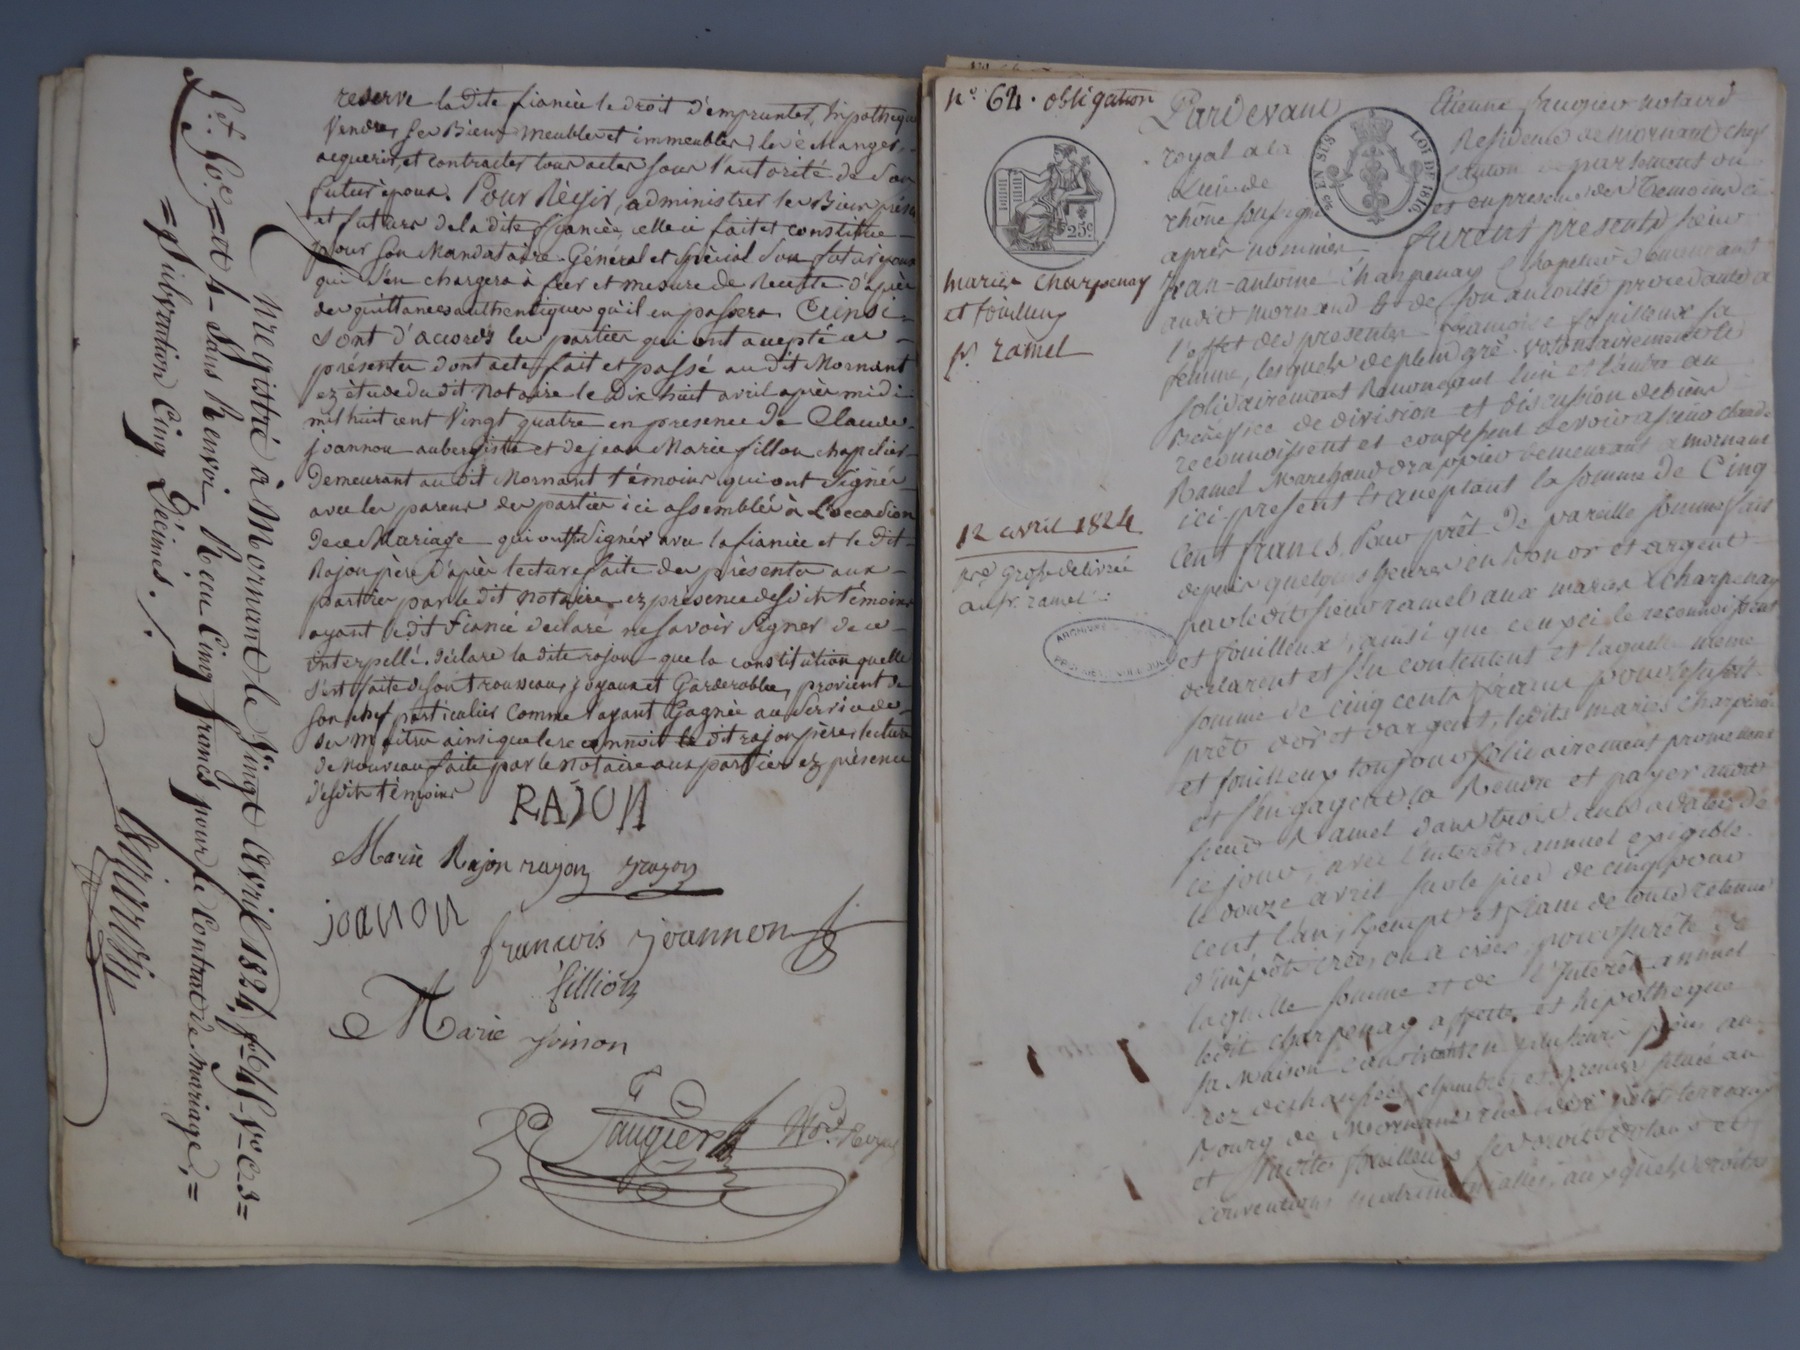 reserve la dite fiancée le droit d'emprunter, hipothequer
Vendre, ses Biens meubles et immeubles, les échanger,
acquerir, et contracter tous actes sous l'autorité de son
futur époux. Pour Régir, administrer les Biens présens
et futurs de la dite fiancée, celle ci fait et constitue
pour son Mandataire Général et spécial son futur époux
qui s'en chargera à fur et mesure de Recette d'après
des quittances authentiques qu'il en passera Einsi
sont d'accords les parties qui ont accepté ces
présentes dont acte, fait et passé au dit Mornant
ez étude du dit Notaire le Dix huit avril après midi
mil huit cent Vingt quatre en presence de Claude
joannon aubergiste et de jean Marie fillon chapelier
Demeurant au dit Mornant témoins qui ont Signés
avec les parens des parties ici assemblés à L'occasion
de ce Mariage qui ont Signés avec la fiancée et le dit
Rajon père d'après lecture faite des présentes aux
parties par le dit Notaire ez présence desdits témoins
ayant le dit Fiancé déclaré ne savoir Signer de ce
interpellé. déclare la dite rajon que la constitution quelle
s'est faite de son trousseau, joyaux et Garderobbe, provient de
son chef particulier comme l'ayant Gagnée au service de
ses Maitres ainsi que le reconnoit le dit rajon père, lecture
de nouveau faite par le notaire aux parties ez présence
desdits témoins
RAJON
Marie Rajon rajon rajon
joanon
francois joannon
fillion
Marie simon
faugier
Not. Royal
Enregistré à Mornant le Vingt Avril 1824, f°
Sans Renvoi, Reçu Cinq francs pour le Contrat de Mariage, =
= Subvention Cinquante Décimes ./.
N° 64. obligation
mariés charpenay
et fouilleux
pr. ramel
12 avril 1824
pre grosse delivrée
au sr. ramel
25c
EN SUS
LOI DE 1816
Pardevant Etienne faugier notaire
royal a la Résidence de mornant chef
Lieu de Canton departement du
rhône soussigné et en presence des Temoins ci
après nommés, furent presents sieur
Jean-antoine Charpenay Chapelier demeurant
audit mornand & de son autorité procedante a
l'effet des presentes françoise fouilleux sa
femme, lesquels de plein gré volontairement et
solidairement Renonçant l'un et l'autre au
Bénéfice de division et discussion de biens
reconnoissent et confessent devoir a sieur claude
Ramel Marchand drappier demeurant a mornant
ici present & acceptant la somme de Cinq
Cent francs, Pour prêt de pareille somme fait
depuis quelques heures en bon or et argent
par ledit sieur ramel aux mariés Charpenay
et fouilleux, ainsi que ceux ci le reconnoissent
declarent et s'en contentent et laquelle meme
somme de cinq cents francs pour susdit
prêt d'or et d'argent, lesdits mariés Charpenay
et fouilleux toujours solidairement promettent
et s'engagent a Rendre et payer audit
sieur Ramel dans trois ans a dater de
ce jour, avec l'interêt annuel exigible
le douze avril sur le pied de cinq pour
cent l'an, exempt et franc de toute retenue
d'impôts créés ou a créer, pour sureté de
laquelle somme et de l'Interêt annuel
ledit charpenay affecte et hipotheque
sa Maison consistant en plusieurs pièces au
rez dechaussée, chambres et grenier située au
Bourg de Mornant rue
et ladite fouilleux ses droits dotaux et
conventions matrimonialles, auxquels droits